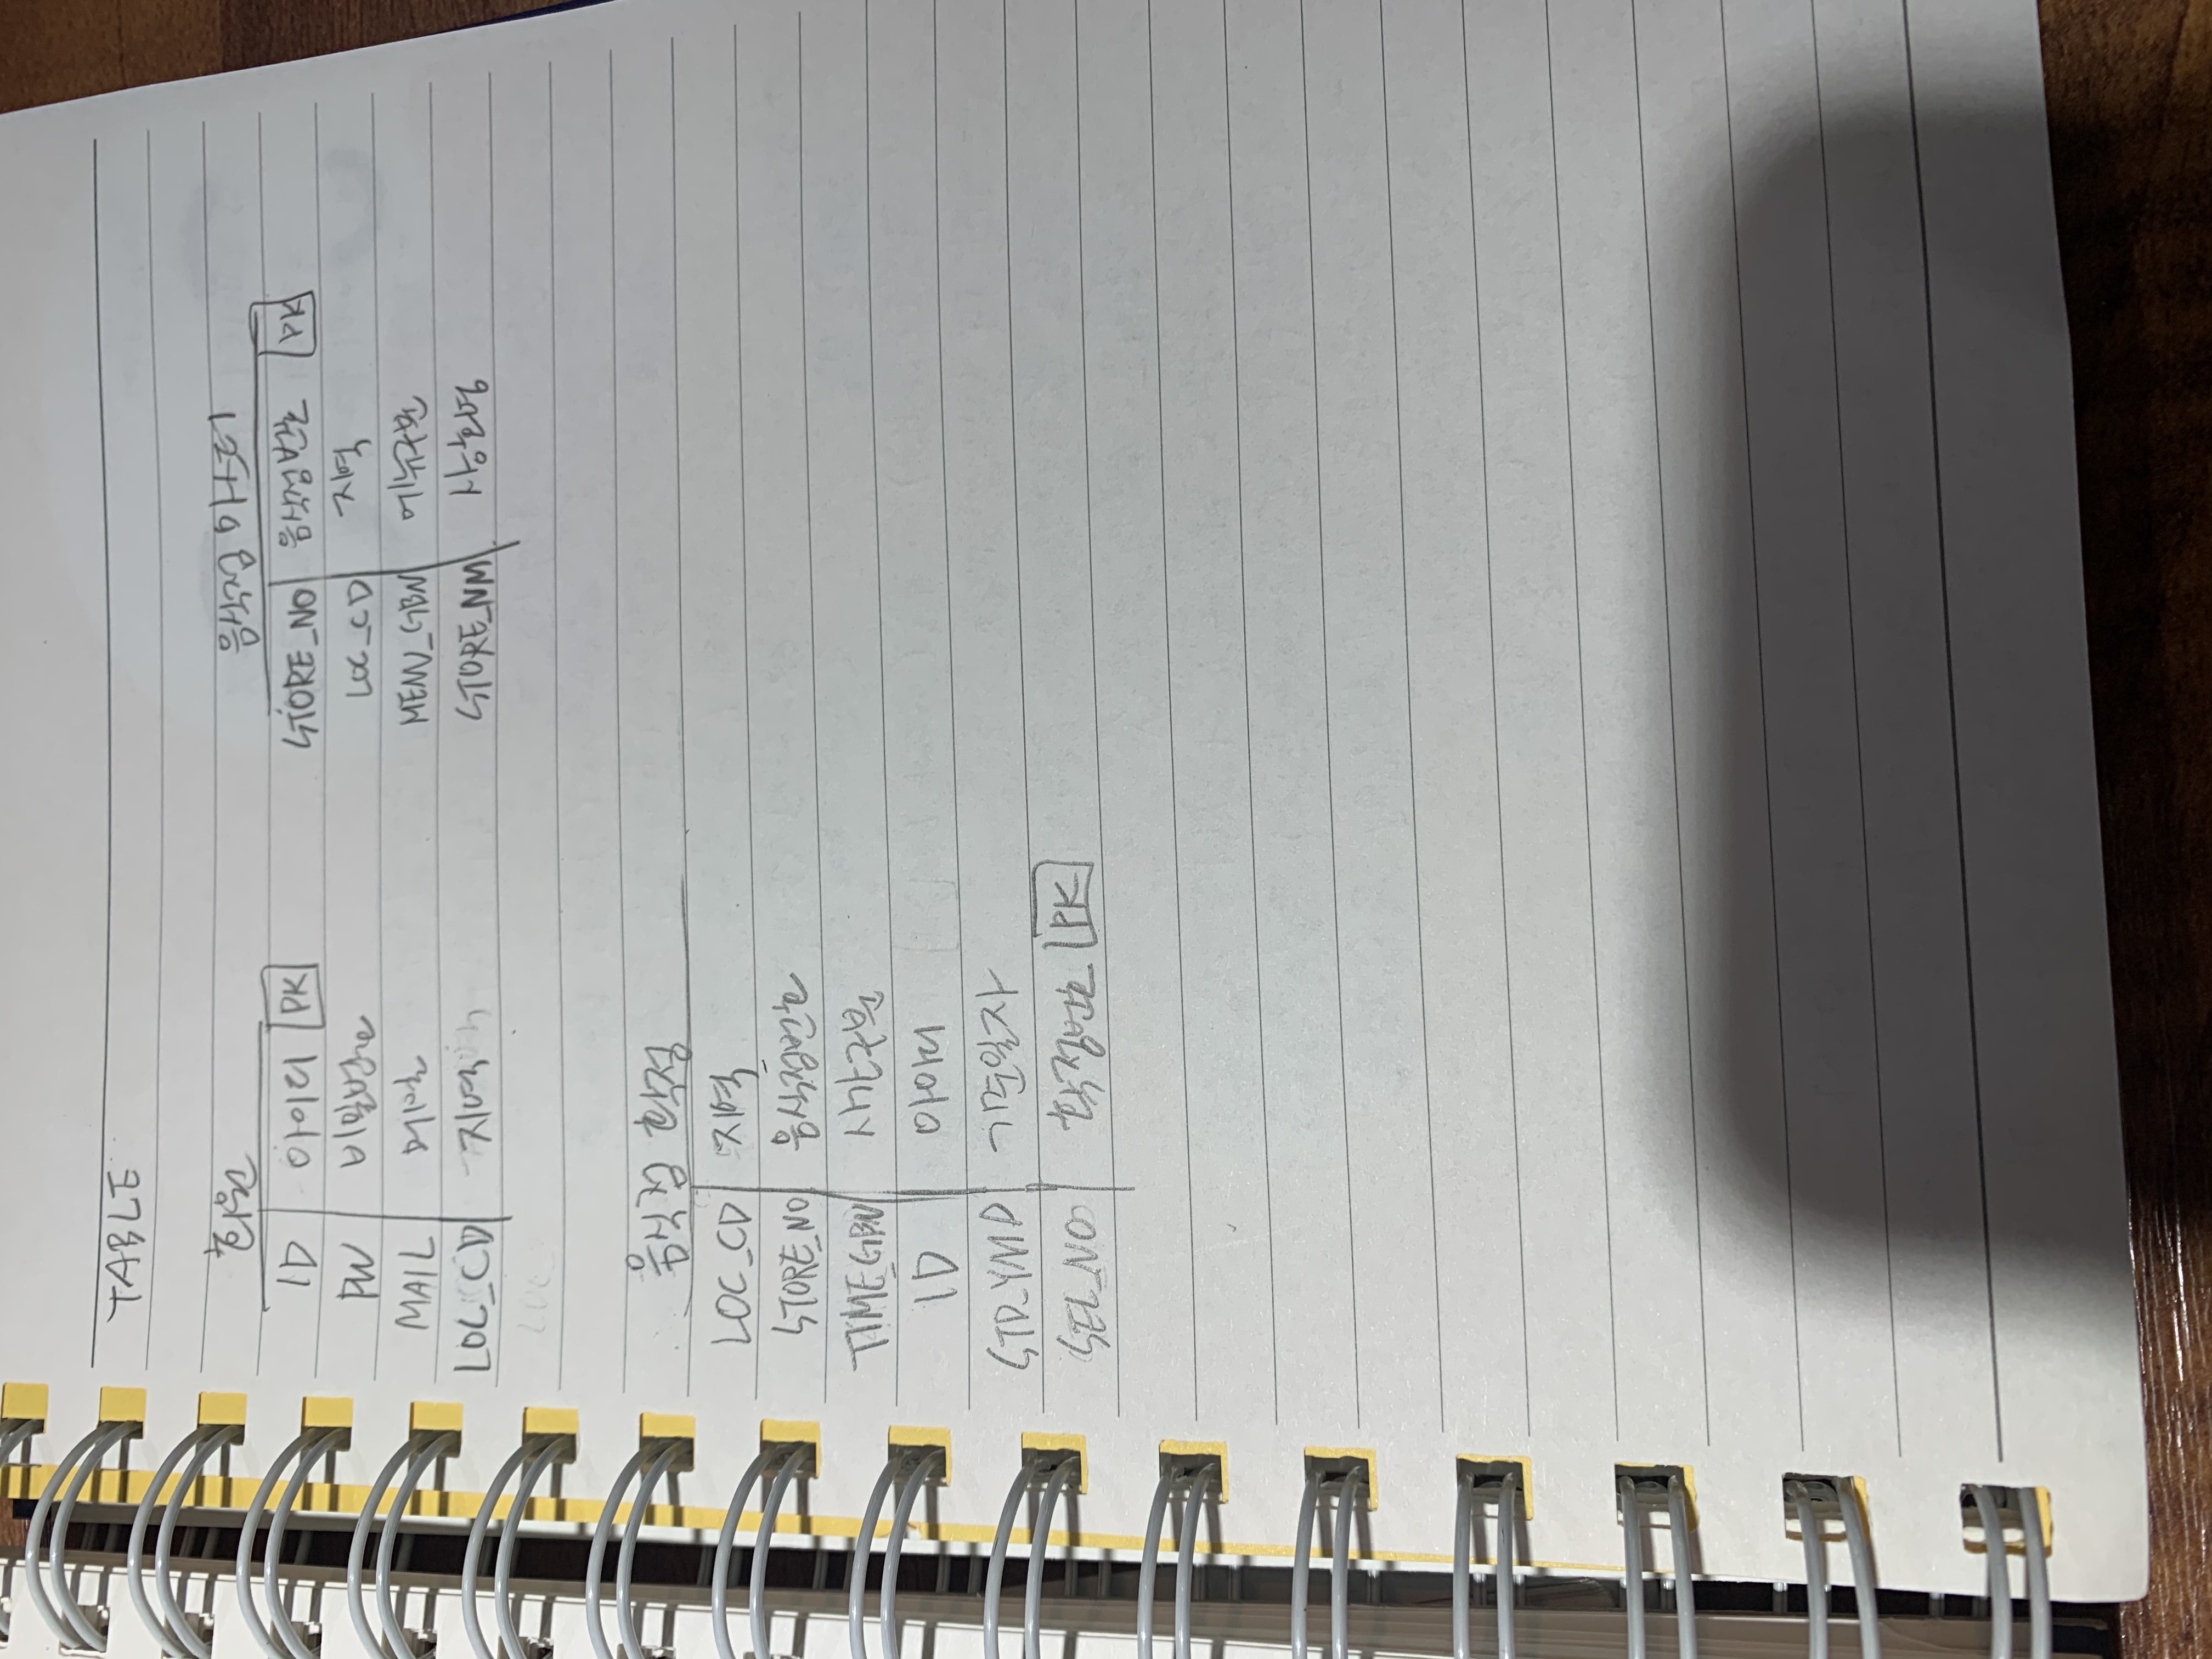 TABLE
회원
ID 아이디 PK
PW 비밀번호
MAIL 메일
LOC_CD 지역
LOC_
음식점 마스터
STORE_NO 음식점번호 PK
LOC_CD 지역
MENU_GBN 메뉴구분
STORE_NM 상호명
음식점 확정
LOC_CD 지역
STORE_NO 음식점번호
TIME_GBN 시간구분
ID 아이디
STD_YMD 기준일자
SEL_NO 확정번호 PK